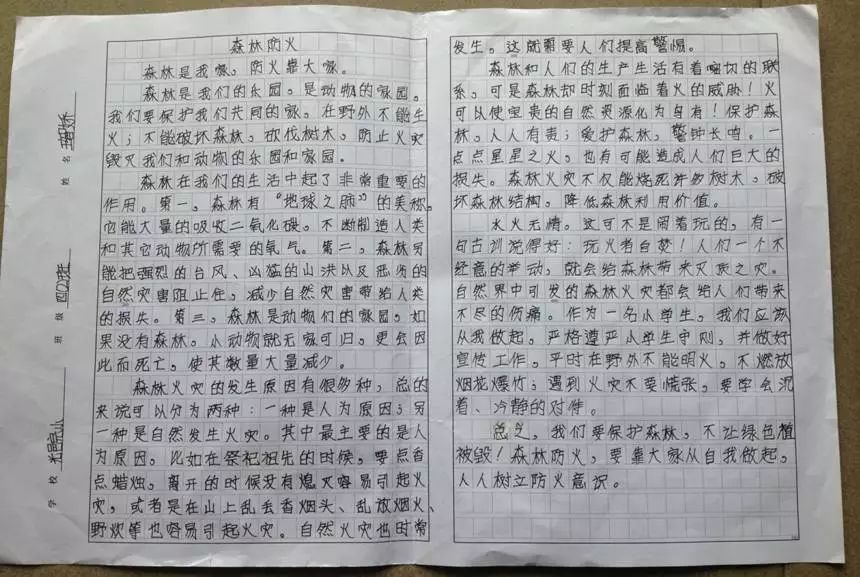 森林防火
森林是我家，防火靠大家。
森林是我们的乐园，是动物的家园。
我们要保护我们共同的家。在野外不能生
火；不能破坏森林，砍伐树木，防止火灾
毁灭我们和动物的乐园和家园。
森林在我们的生活中起了非常重要的
作用。第一，森林有“地球之肺”的美称，
它能大量的吸收二氧化碳，不断制造人类
和其它动物所需要的氧气。第二，森林另
能把强烈的台风、凶猛的山洪以及恶劣的
自然灾害阻止住，减少自然灾害带给人类
的损失。第三，森林是动物们的家园，如
果没有森林，小动物就无家可归，更会因
此而死亡，使其数量大量减少。
森林火灾的发生原因有很多种，总的
来说可以分为两种：一种是人为原因；另
一种是自然发生火灾。其中最主要的是人
为原因。比如在祭祀祖先的时候，要点香
点蜡烛，离开的时候没有熄灭容易引起火
灾，或者是在山上乱丢香烟头、乱放烟火、
野炊等也容易引起火灾。自然火灾也时常
发生，这就需要人们提高警惕。
森林和人们的生产生活有着密切的联
系，可是森林却时刻面临着火的威胁！火
可以使宝贵的自然资源化为乌有！保护森
林，人人有责；爱护森林，警钟长鸣。一
点点星星之火，也有可能造成人们巨大的
损失。森林火灾不仅能烧死许多树木，破
坏森林结构，降低森林利用价值。
水火无情。这可不是闹着玩的，有一
句古训说得好：玩火者自焚！人们一个不
经意的举动，就会给森林带来灭族之灾。
自然界中引发的森林火灾都会给人们带来
不尽的伤痛。作为一名小学生，我们应该
从我做起，严格遵严小学生守则，并做好
宣传工作，平时在野外不能明火，不燃放
烟花爆竹；遇到火灾不要慌张，要学会沉
着、冷静的对待。
总之，我们要保护森林，不让绿色植
被毁！森林防火，要靠大家从自我做起，
人人树立防火意识。
姓名
班级 四(2)班
学校